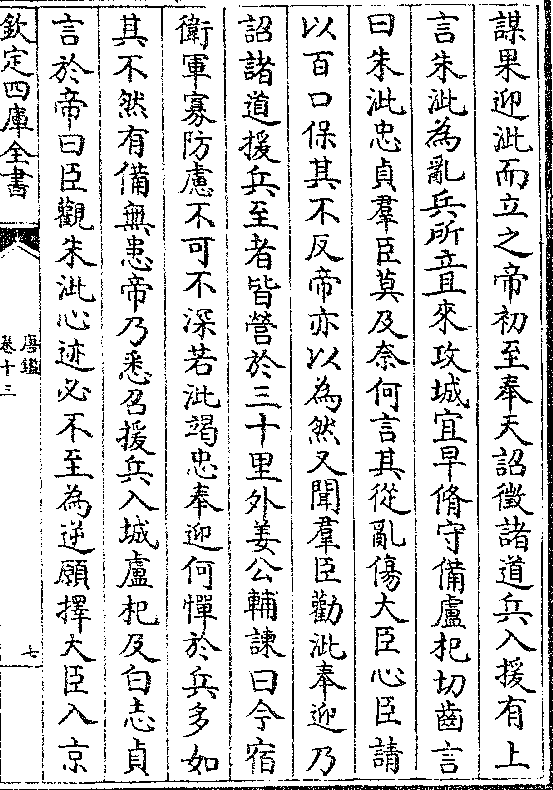 謀果迎泚而立之帝初至奉天詔徵諸道兵入援有上
言朱泚為亂兵所立且來攻城宜早脩守備盧杞切齒言
曰朱泚忠貞羣臣莫及奈何言其從亂傷大臣心臣請
以百口保其不反帝亦以為然又聞羣臣勸泚奉迎乃
詔諸道援兵至者皆營於三十里外姜公輔諫曰今宿
衛軍寡防慮不可不深若泚竭忠奉迎何憚於兵多如
其不然有備無患帝乃悉召援兵入城盧杞及白志貞
言於帝曰臣觀朱泚心迹必不至為逆願擇大臣入京
欽定四庫全書
唐鑑
卷十三
七